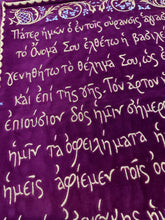 Πάτερ ἡμῶν ὁ ἐν τοῖς οὐρανοῖς ἁγιασ
τὸ ὄνομά Σου ἐλθέτω ἡ βασιλε
γενηθήτω τὸ θέλημά Σου, ὡς ἐ
καὶ ἐπὶ τῆς γῆς. Τὸν ἄρτον
ἐπιούσιον δὸς ἡμῖν σήμερ
ἡμῖν τὰ ὀφειλήματα
ἡμεῖς ἀφίεμεν τοῖς ὀ